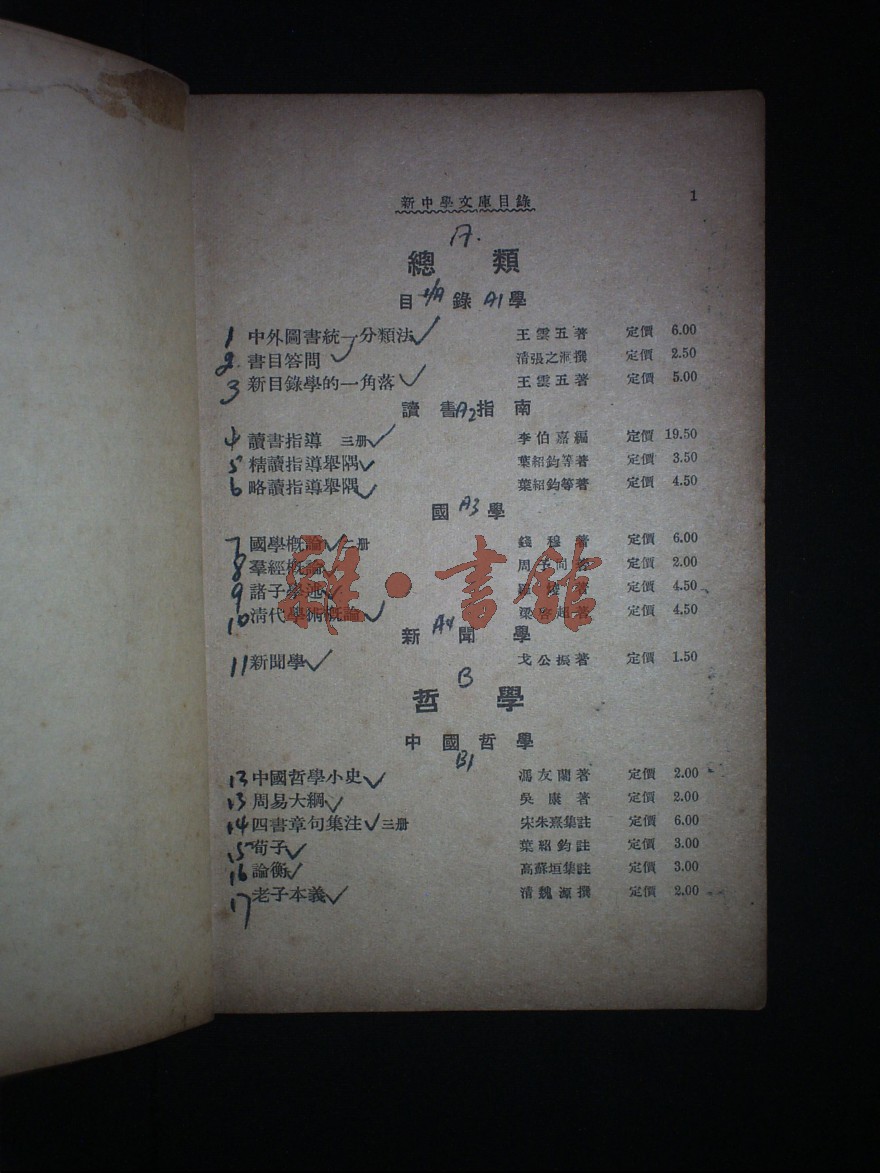 新中學文庫目錄 1
A.
總類
目錄學 A1
1 中外圖書統一分類法✓ 王雲五著 定價 6.00
2. 書目答問✓ 清張之洞撰 定價 2.50
3 新目錄學的一角落✓ 王雲五著 定價 5.00
讀書指南 A2
4 讀書指導 三册✓ 李伯嘉編 定價 19.50
5 精讀指導舉隅✓ 葉紹鈞等著 定價 3.50
6 略讀指導舉隅✓ 葉紹鈞等著 定價 4.50
國學 A3
7 國學概論✓二册 錢穆著 定價 6.00
8 羣經概論✓ 周予同著 定價 2.00
9 諸子學述✓ 著 定價 4.50
10 清代學術概論✓ 梁啓超著 定價 4.50
新聞學 A4
11 新聞學✓ 戈公振著 定價 1.50
B
哲學
中國哲學
B1
13 中國哲學小史✓ 馮友蘭著 定價 2.00
13 周易大綱✓ 吳康著 定價 2.00
14 四書章句集注✓三册 宋朱熹集註 定價 6.00
15 荀子✓ 葉紹鈞註 定價 3.00
16 論衡✓ 高蘇垣集註 定價 3.00
17 老子本義✓ 清魏源撰 定價 2.00
雜·書館